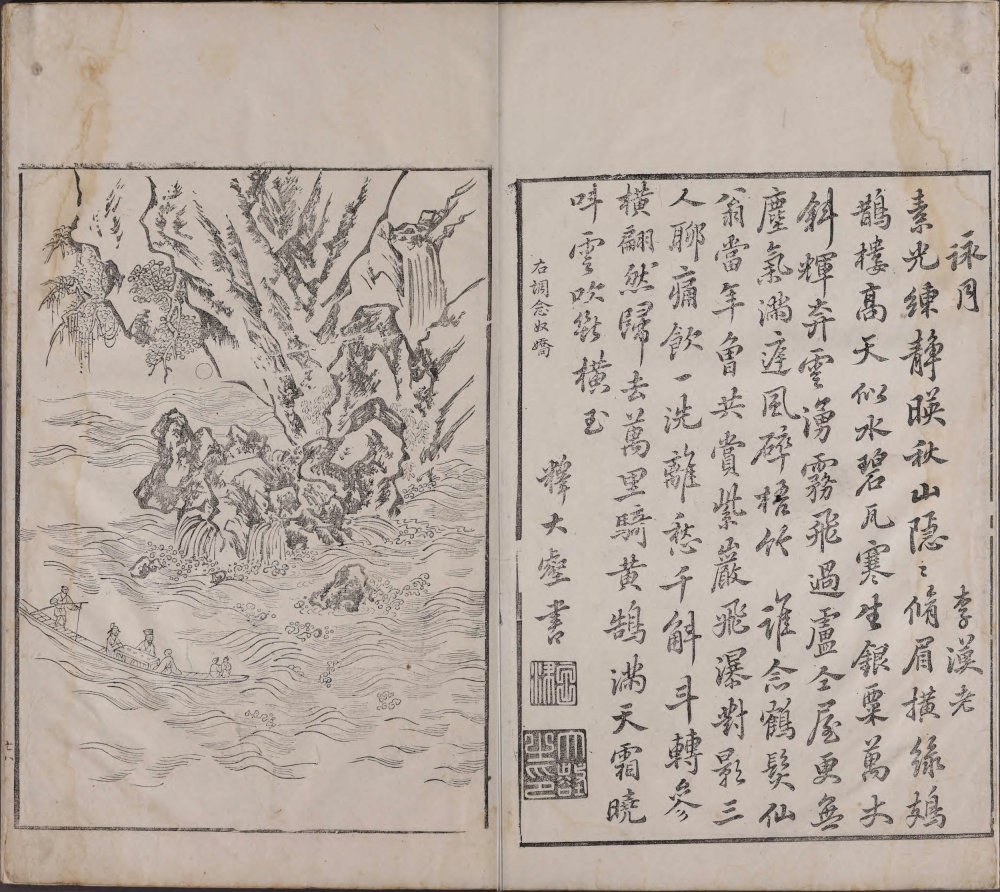 詠月 李漢老
素光練靜暎秋山隱〻脩眉橫綠鳷
鵲樓高天似水碧瓦寒生銀粟萬丈
斜輝奔雲湧霧飛過盧仝屋更無
塵氣滿庭風碎梧竹 誰念鶴髮仙
翁當年曾共賞紫巖飛瀑對影三
人聊痛飲一洗離愁千斛斗轉參
橫翩然歸去萬里騎黃鵠滿天霜曉
叫雲吹斷橫玉
右調念奴嬌
釋大壑書
玄津
大壑之印